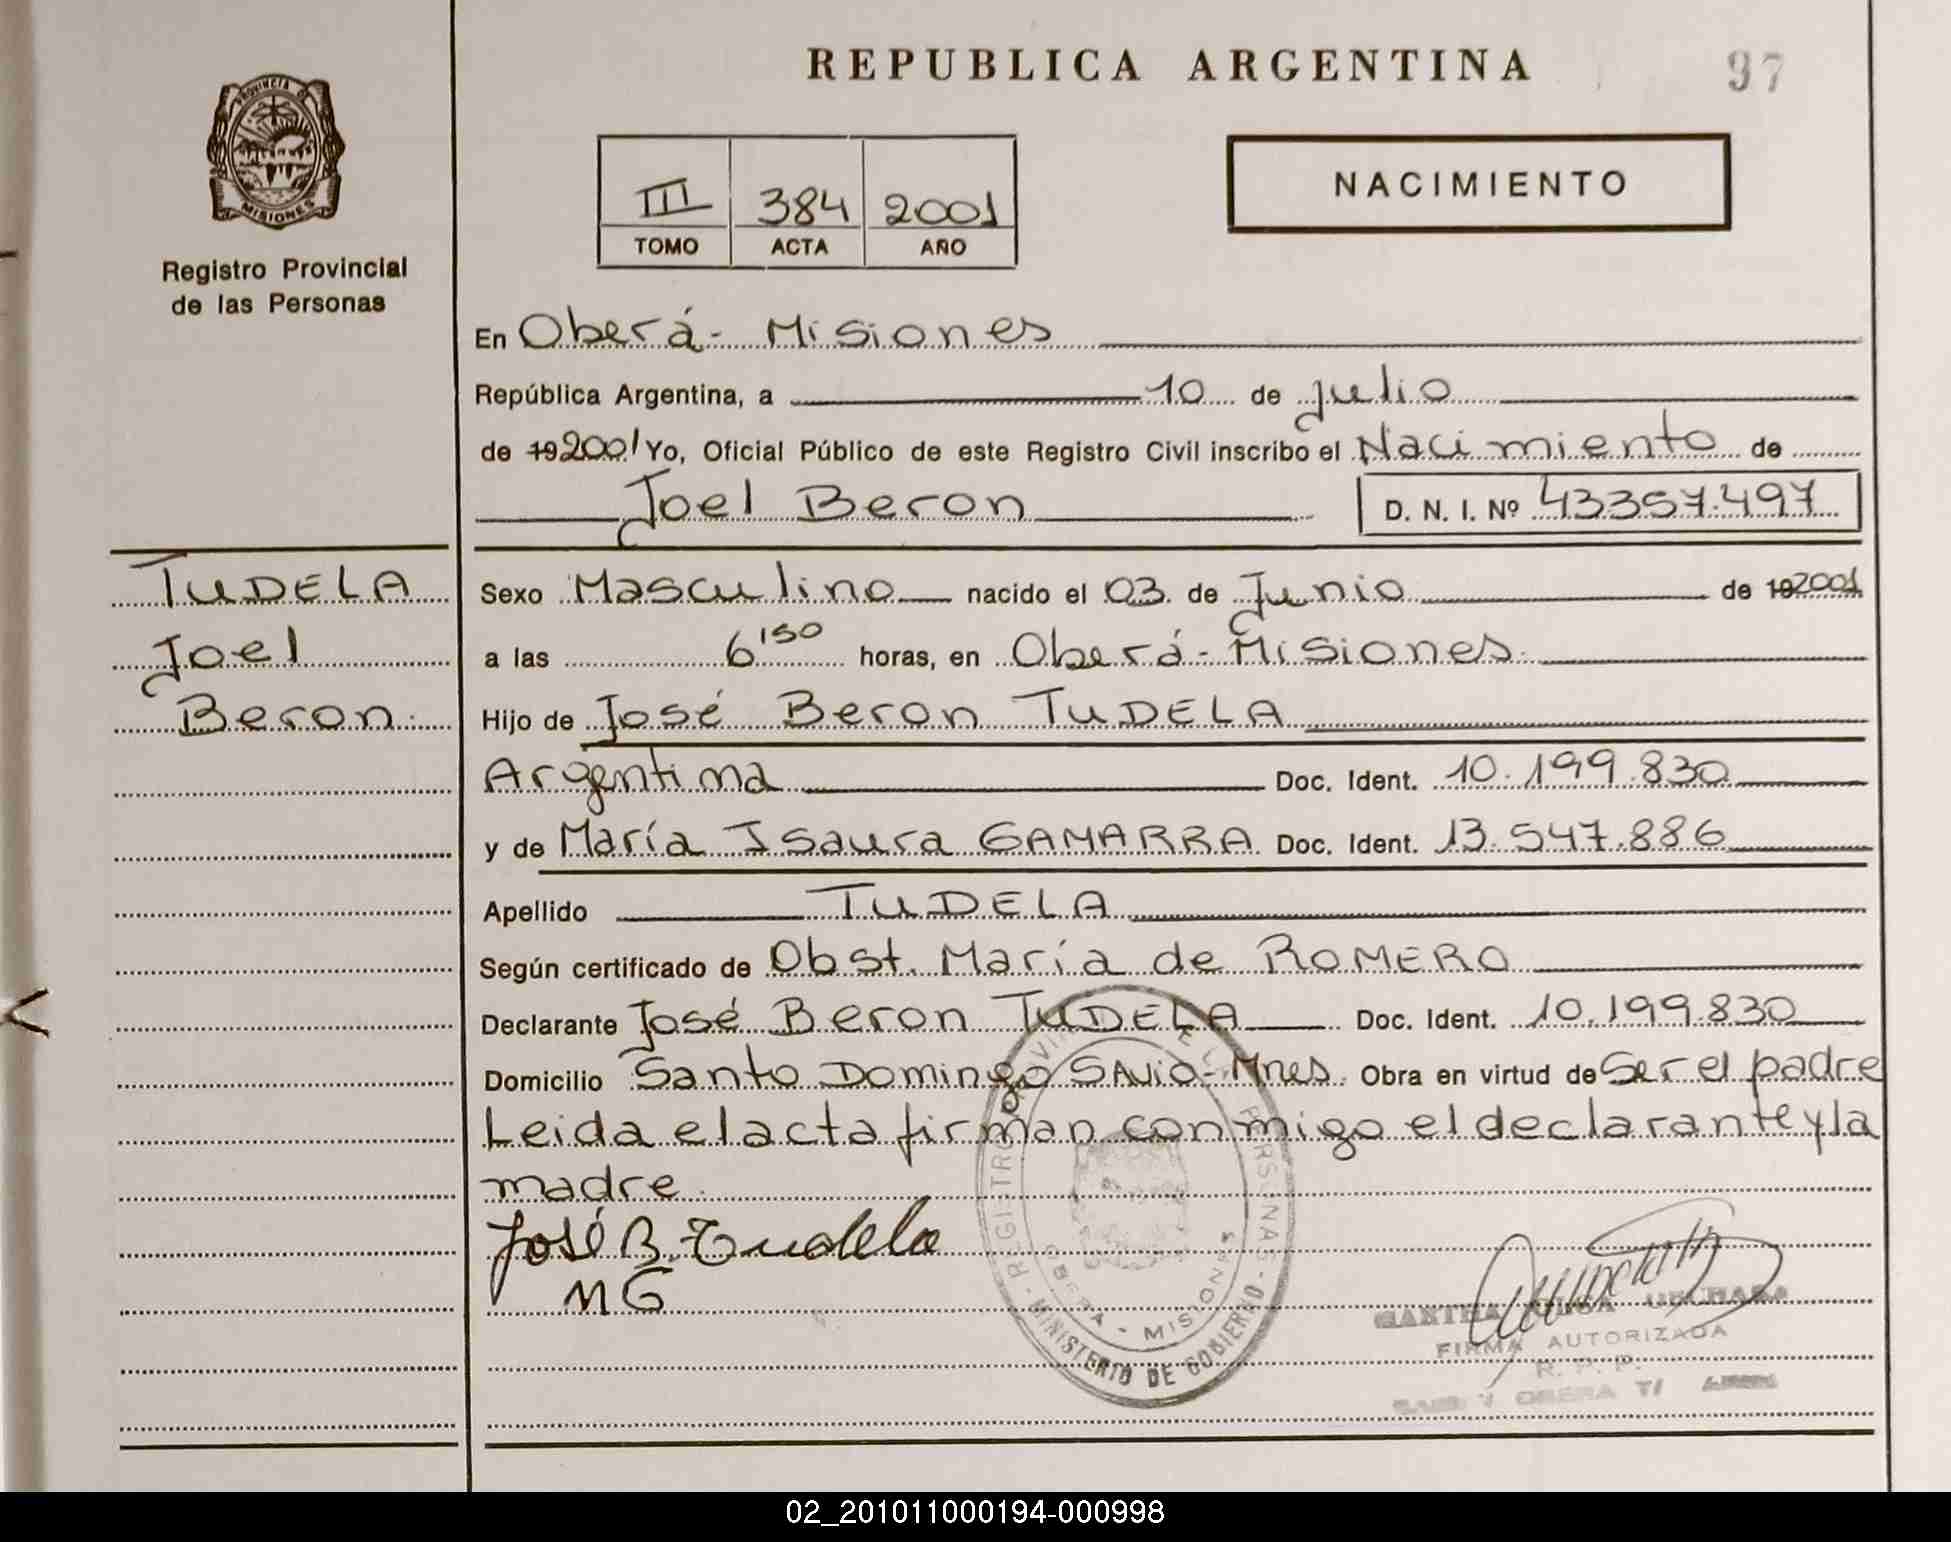 REPUBLICA ARGENTINA
97
PROVINCIA DE
MISIONES
Registro Provincial
de las Personas
III 384 2001
TOMO ACTA AÑO
NACIMIENTO
En Oberá - Misiones
República Argentina, a 10 de julio
de 19 2001 Yo, Oficial Público de este Registro Civil inscribo el Nacimiento de
Joel Beron D. N. I. Nº 43357.497
TUDELA
Joel
Beron.
Sexo Masculino nacido el 03 de Junio de 19 2001
a las 6'50 horas, en Oberá - Misiones.
Hijo de José Beron TUDELA
Argentina Doc. Ident. 10.199.830
y de María Isaura GAMARRA Doc. Ident. 13.547.886
Apellido TUDELA
Según certificado de Obst. María de ROMERO
Declarante José Beron TUDELA Doc. Ident. 10.199.830
Domicilio Santo Domingo SAVIO - Mnes. Obra en virtud de Ser el padre
Leida el acta firman conmigo el declarante y la
madre.
José B. Tudela
MG
OBERA - MISIONES
MINISTERIO DE GOBIERNO
FIRMA AUTORIZADA
R. P. P.
02_201011000194-000998